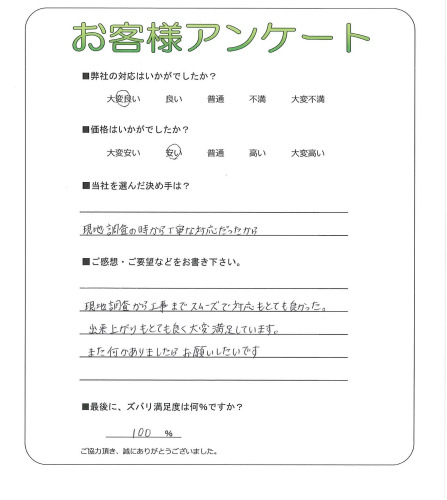 お客様アンケート
■弊社の対応はいかがでしたか？
大変良い 良い 普通 不満 大変不満
■価格はいかがでしたか？
大変安い 安い 普通 高い 大変高い
■当社を選んだ決め手は？
現地調査の時から丁寧な対応だったから
■ご感想・ご要望などをお書き下さい。
現地調査から工事までスムーズで対応もとても良かった。
出来上がりもとても良く大変満足しています。
また何かありましたらお願いしたいです
■最後に、ズバリ満足度は何%ですか？
100 %
ご協力頂き、誠にありがとうございました。